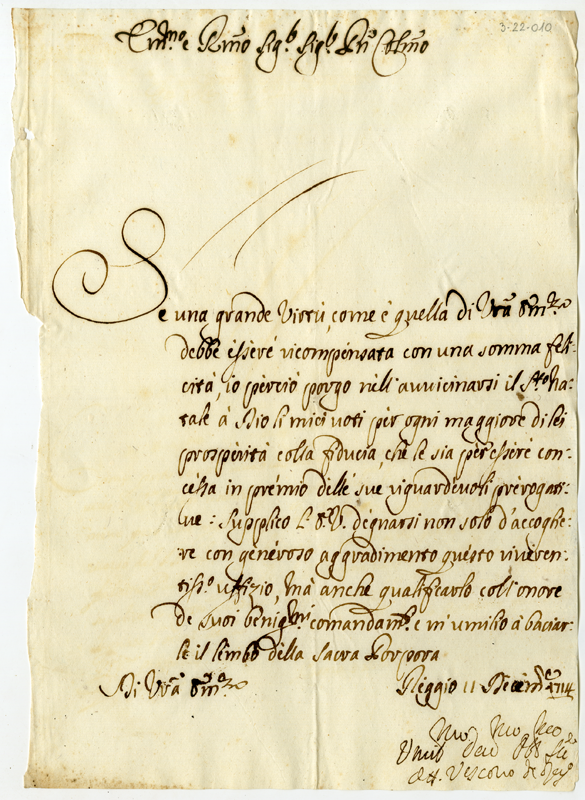 3-22-010
Em̃o e Rm̃o Sigr Sigr Pñ Colm̃o
Se una grande Virtù, come è quella di Vrã Em.za
debbe essere ricompensata con una somma feli-
cità, io perciò porgo nell'avvicinarsi il Sto Na-
tale à Dio li miei voti per ogni maggiore di lei
prosperità colla fiducia, che le sia per essere con-
cessa in premio delle sue riguardevoli prerogati-
ve: Supplico L'E.V. degnarsi non solo d'accoglie-
re con generoso aggradimento questo riveren-
tisso uffizio, mà anche qualificarlo coll'onore
de suoi benigni comandamti e m'umilio à baciar-
le il lembo della Sacra Porpora
Di Vrã Em.za
Reggio 11 Decembre 1714
Vmo
Vescovo di